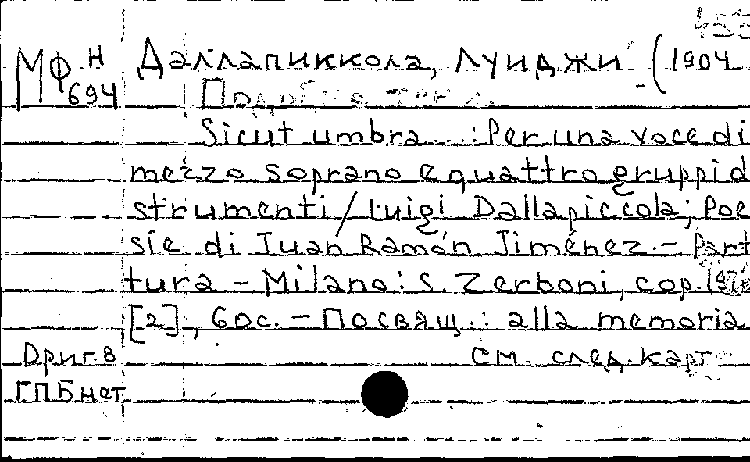 МФ Н 694
Даллапиккола, Луиджи (1904
Подобие тени.
Sicut umbra... : Per una voce di
mezzo soprano e quattro gruppi d
strumenti / Luigi Dallapiccola; Poe
sie di Juan Ramón Jiménez. - Part
tura - Milano: S. Zerboni, cop.
[2], 60 с. - Посвящ.: alla memoria
Ориг. в
см. след. карт
ГПБ нот